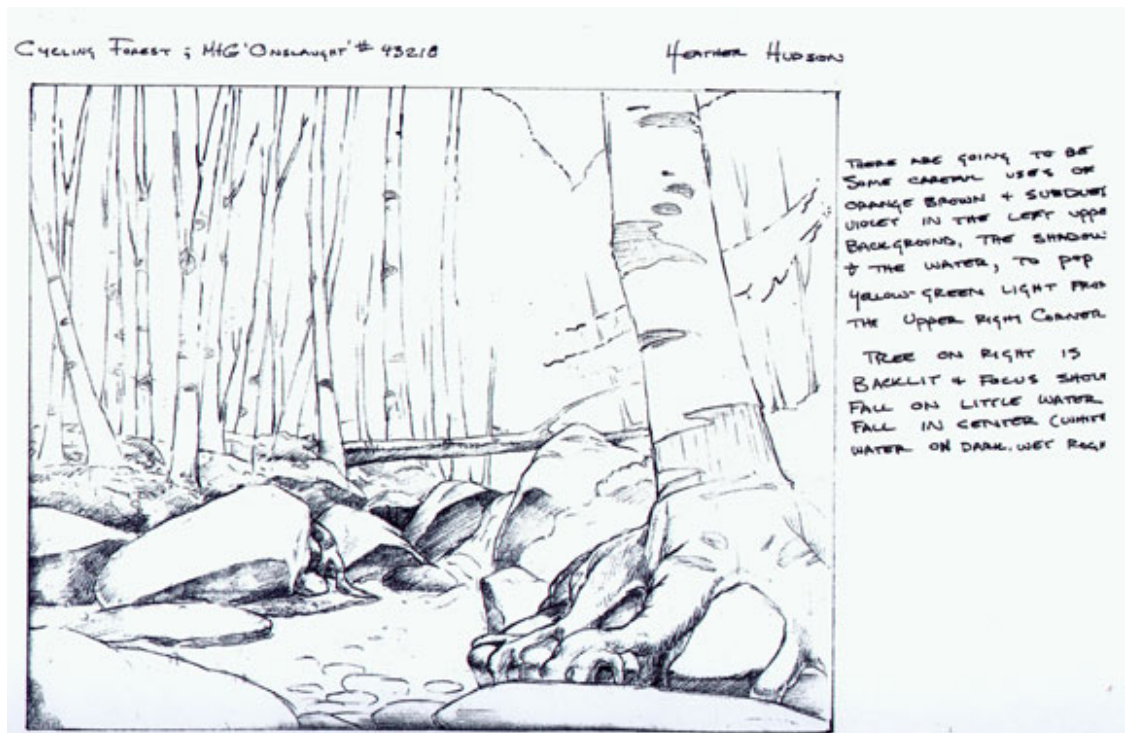 CYCLING FOREST ; MtG 'ONSLAUGHT' # 43218
HEATHER HUDSON
THERE ARE GOING TO BE
SOME CAREFUL USES OF
ORANGE BROWN + SUBDUED
VIOLET IN THE LEFT UPPE
BACKGROUND, THE SHADOW
+ THE WATER, TO POP
YELLOW-GREEN LIGHT FROM
THE UPPER RIGHT CORNER
TREE ON RIGHT IS
BACKLIT + FOCUS SHOU
FALL ON LITTLE WATER
FALL IN CENTER (WHITE
WATER ON DARK, WET ROCK